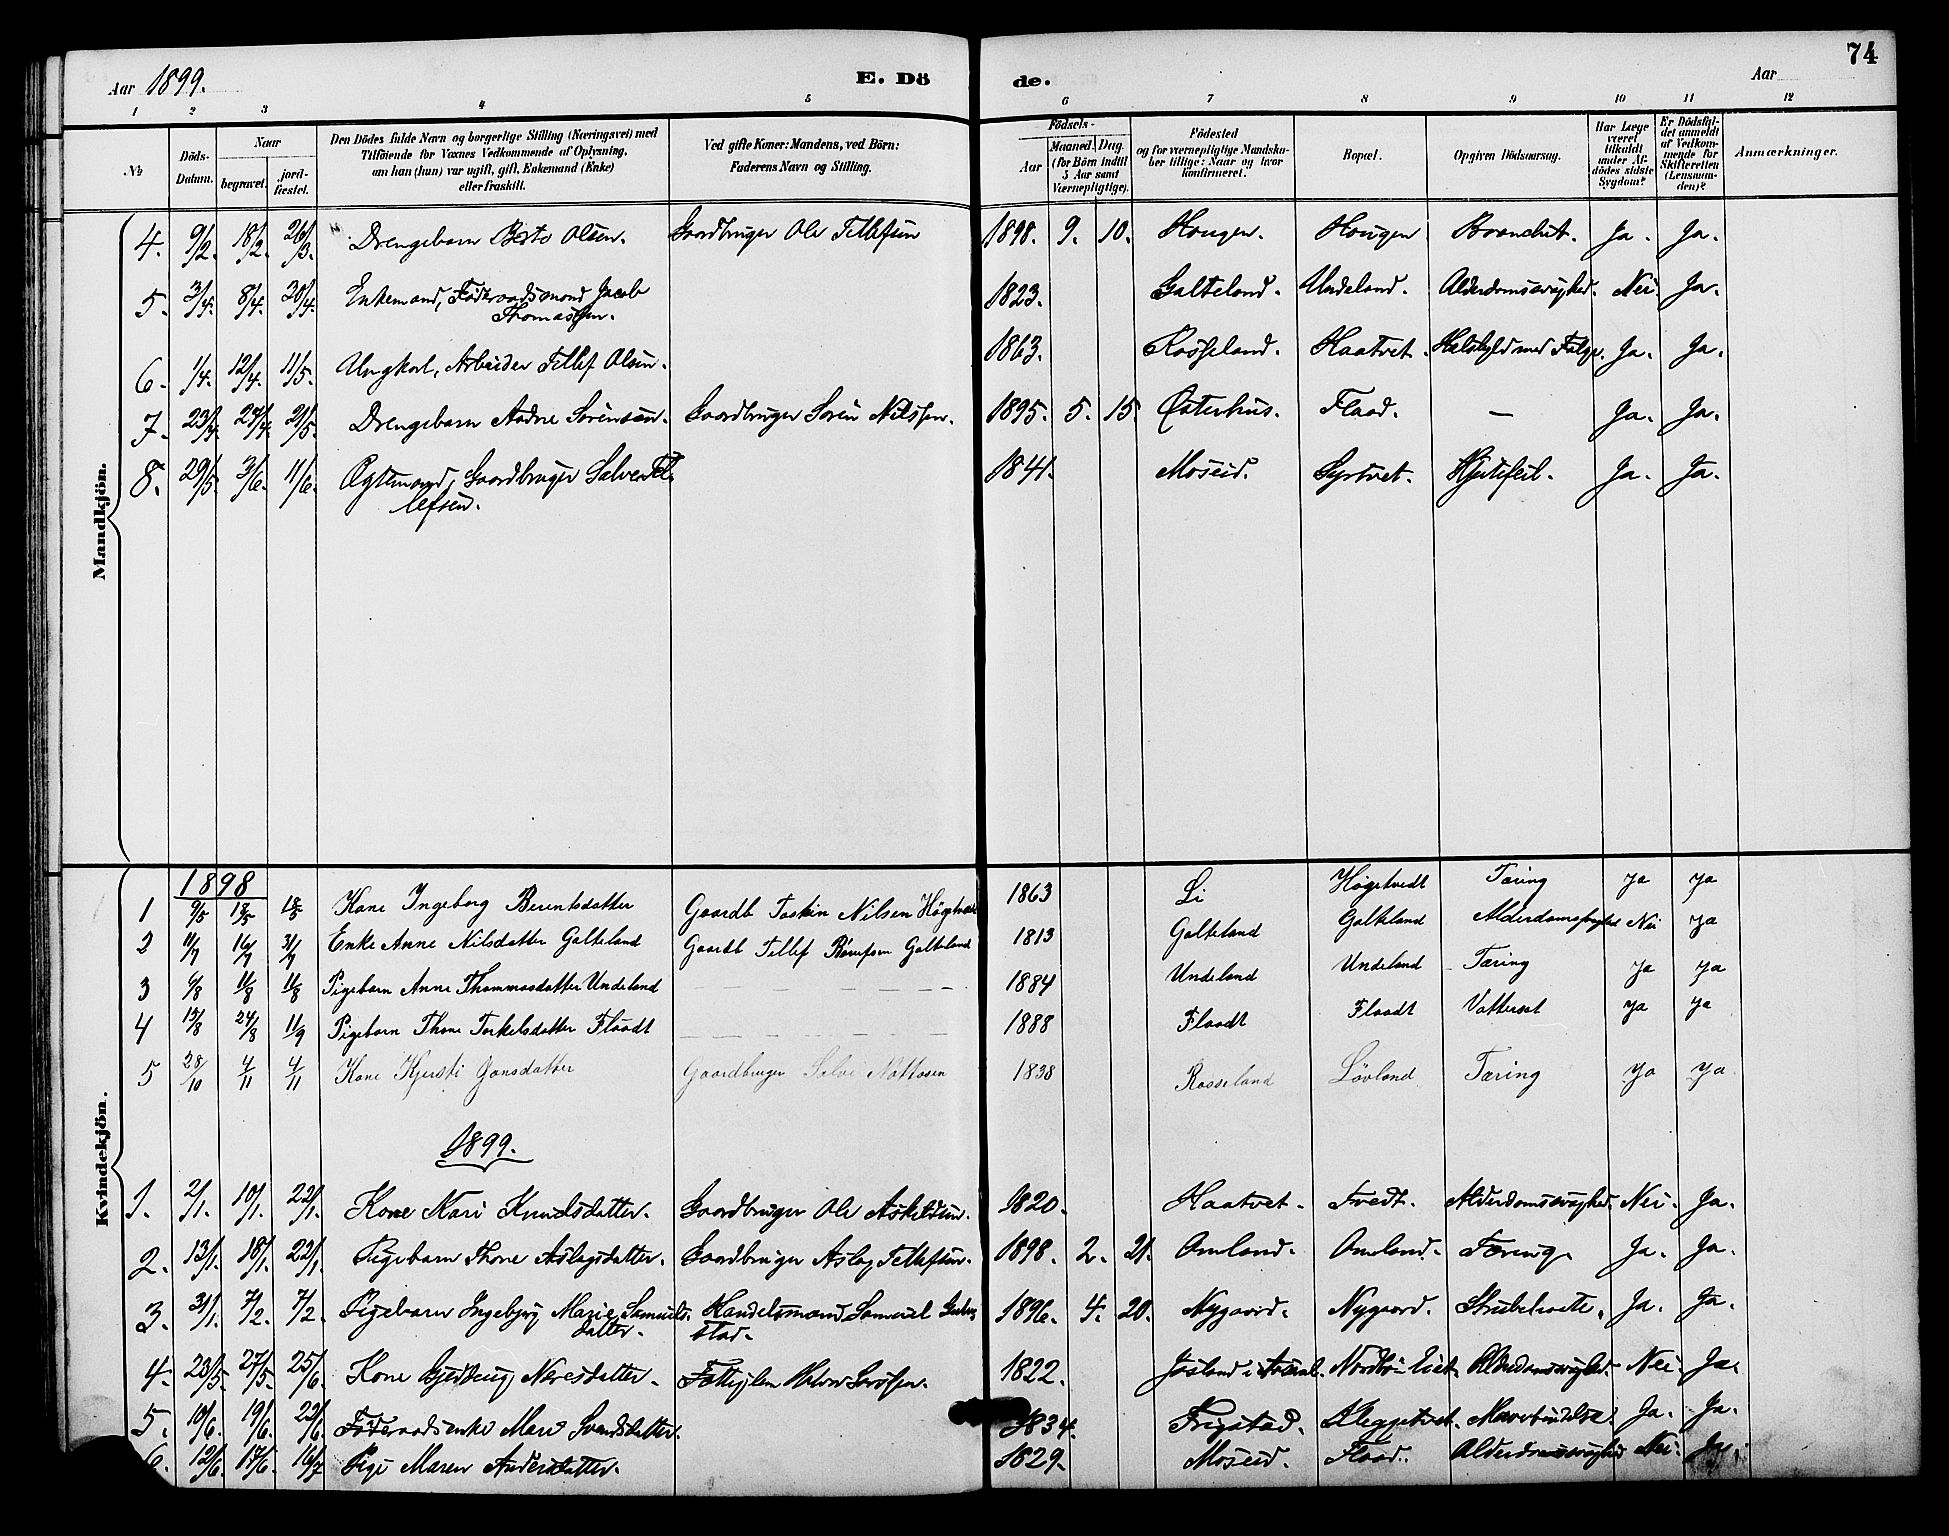 74
Aar 1899. E. Dö de. Aar
1 2 3 4 5 6 7 8 9 10 11 12
No
Döds-Datum.
Naar
begravet.
jord-fæstet.
Den Dödes fulde Navn og borgerlige Stilling (Næringsvei) med
Tilföiende for Voxnes Vedkommende af Oplysning,
om han (hun) var ugift, gift, Enkemand (Enke)
eller fraskilt.
Ved gifte Koner: Mandens, ved Börn:
Faderens Navn og Stilling.
Födsels-
Aar
Maaned. Dag.
(for Börn indtil
5 Aar samt
Værnepligtige).
Födested
og for værnepligtige Mandska-
ber tillige: Naar og hvor
konfirmeret.
Bopæl.
Opgiven Dödsaarsag.
Har Læge
været
tilkaldt
under Af-
dödes sidste
Sygdom?
Er Dödsfal-
det anmeldt
af Vedkom-
mende for
Skifteretten
(Lensman-
den)?
Anmærkninger.
Mandkjön.
4. 9/2. 18/2. 26/3. Drengebarn Olsen. Gaardbruger Ole Tellefsen 1898. 9. 10. Hougen. Hougen Ja. Ja.
5. 3/4. 8/4. 30/4. Enkemand, Föderaadsmand Jacob
Thomassen. 1823. Galteland. Undeland. Alderdomssvaghed. Nei. Ja.
6. 1/4. 12/4. 11/5. Ungkarl, Arbeider Tellef Olsen. 1863. Rosseland. Haatvet. Ja. Ja.
7. 23/4. 27/4. 21/5. Drengebarn Aadne Sörensen. Gaardbruger Sören Nilssen. 1895. 5. 15. Österhus. Flaad. — Ja. Ja.
8. 29/5. 3/6. 11/6. Ægtemand, Gaardbruger Salve Tel-
lefsen. 1841. Moseid. Syrtvet. Hjertefeil. Ja. Ja.
Kvindekjön.
1898
1 9/5 18/5 18/5 Kone Ingeborg Berentsdatter Gaardb Nilsen 1863 Li Högetvedt Tæring ja ja
2 11/7 16/7 31/7 Enke Anne Nilsdatter Galteland Gaardb Tellef Galteland 1813 Galteland Galteland Nei ja
3 6/8 11/8 11/8 Pigebarn Anne Thommasdatter Undeland 1884 Undeland Undeland Tæring ja ja
4 15/8 24/8 11/9 Pigebarn Thone Torkelsdatter Flaadt 1888 Flaadt Flaadt Vattersot ja ja
5 28/10 4/11 4/11 Kone Kjersti Gonsdatter Gaardbruger 1838 Rosseland Lövland Tæring ja ja
1899.
1. 2/1. 10/1. 22/1. Kone Kari Knudsdatter. Gaardbruger Ole Askeldsen. 1820. Haatvet. Tvedt. Alderdomssvaghed. Nei. Ja.
2. 13/1. 18/1. 22/1. Pigebarn Thone Aslagsdatter. Gaardbruger Aslag Tellefsen. 1898. 2. 21. Omland. Omland. Tæring. Ja. Ja.
3. 31/1. 7/2. 7/2. Pigebarn Ingebjörg Marie Samuels-
datter. Handelsmand Samuel
stad. 1896. 4. 20. Nygaard. Nygaard. Strubehoste. Ja. Ja.
4. 23/5. 27/5. 25/6. Kone 1822. Alderdomssvaghed. Nei. Ja.
5. 10/6. 19/6. 22/6. Föderaadsenke Mari Svendsdatter. 1834. Frigstad. Kleggetvet. Ja. Ja.
6. 12/6. 17/6. 16/7 Pige Maren Andersdatter. 1829. Moseid. Flaad. Alderdomssvaghed Nei. Ja.